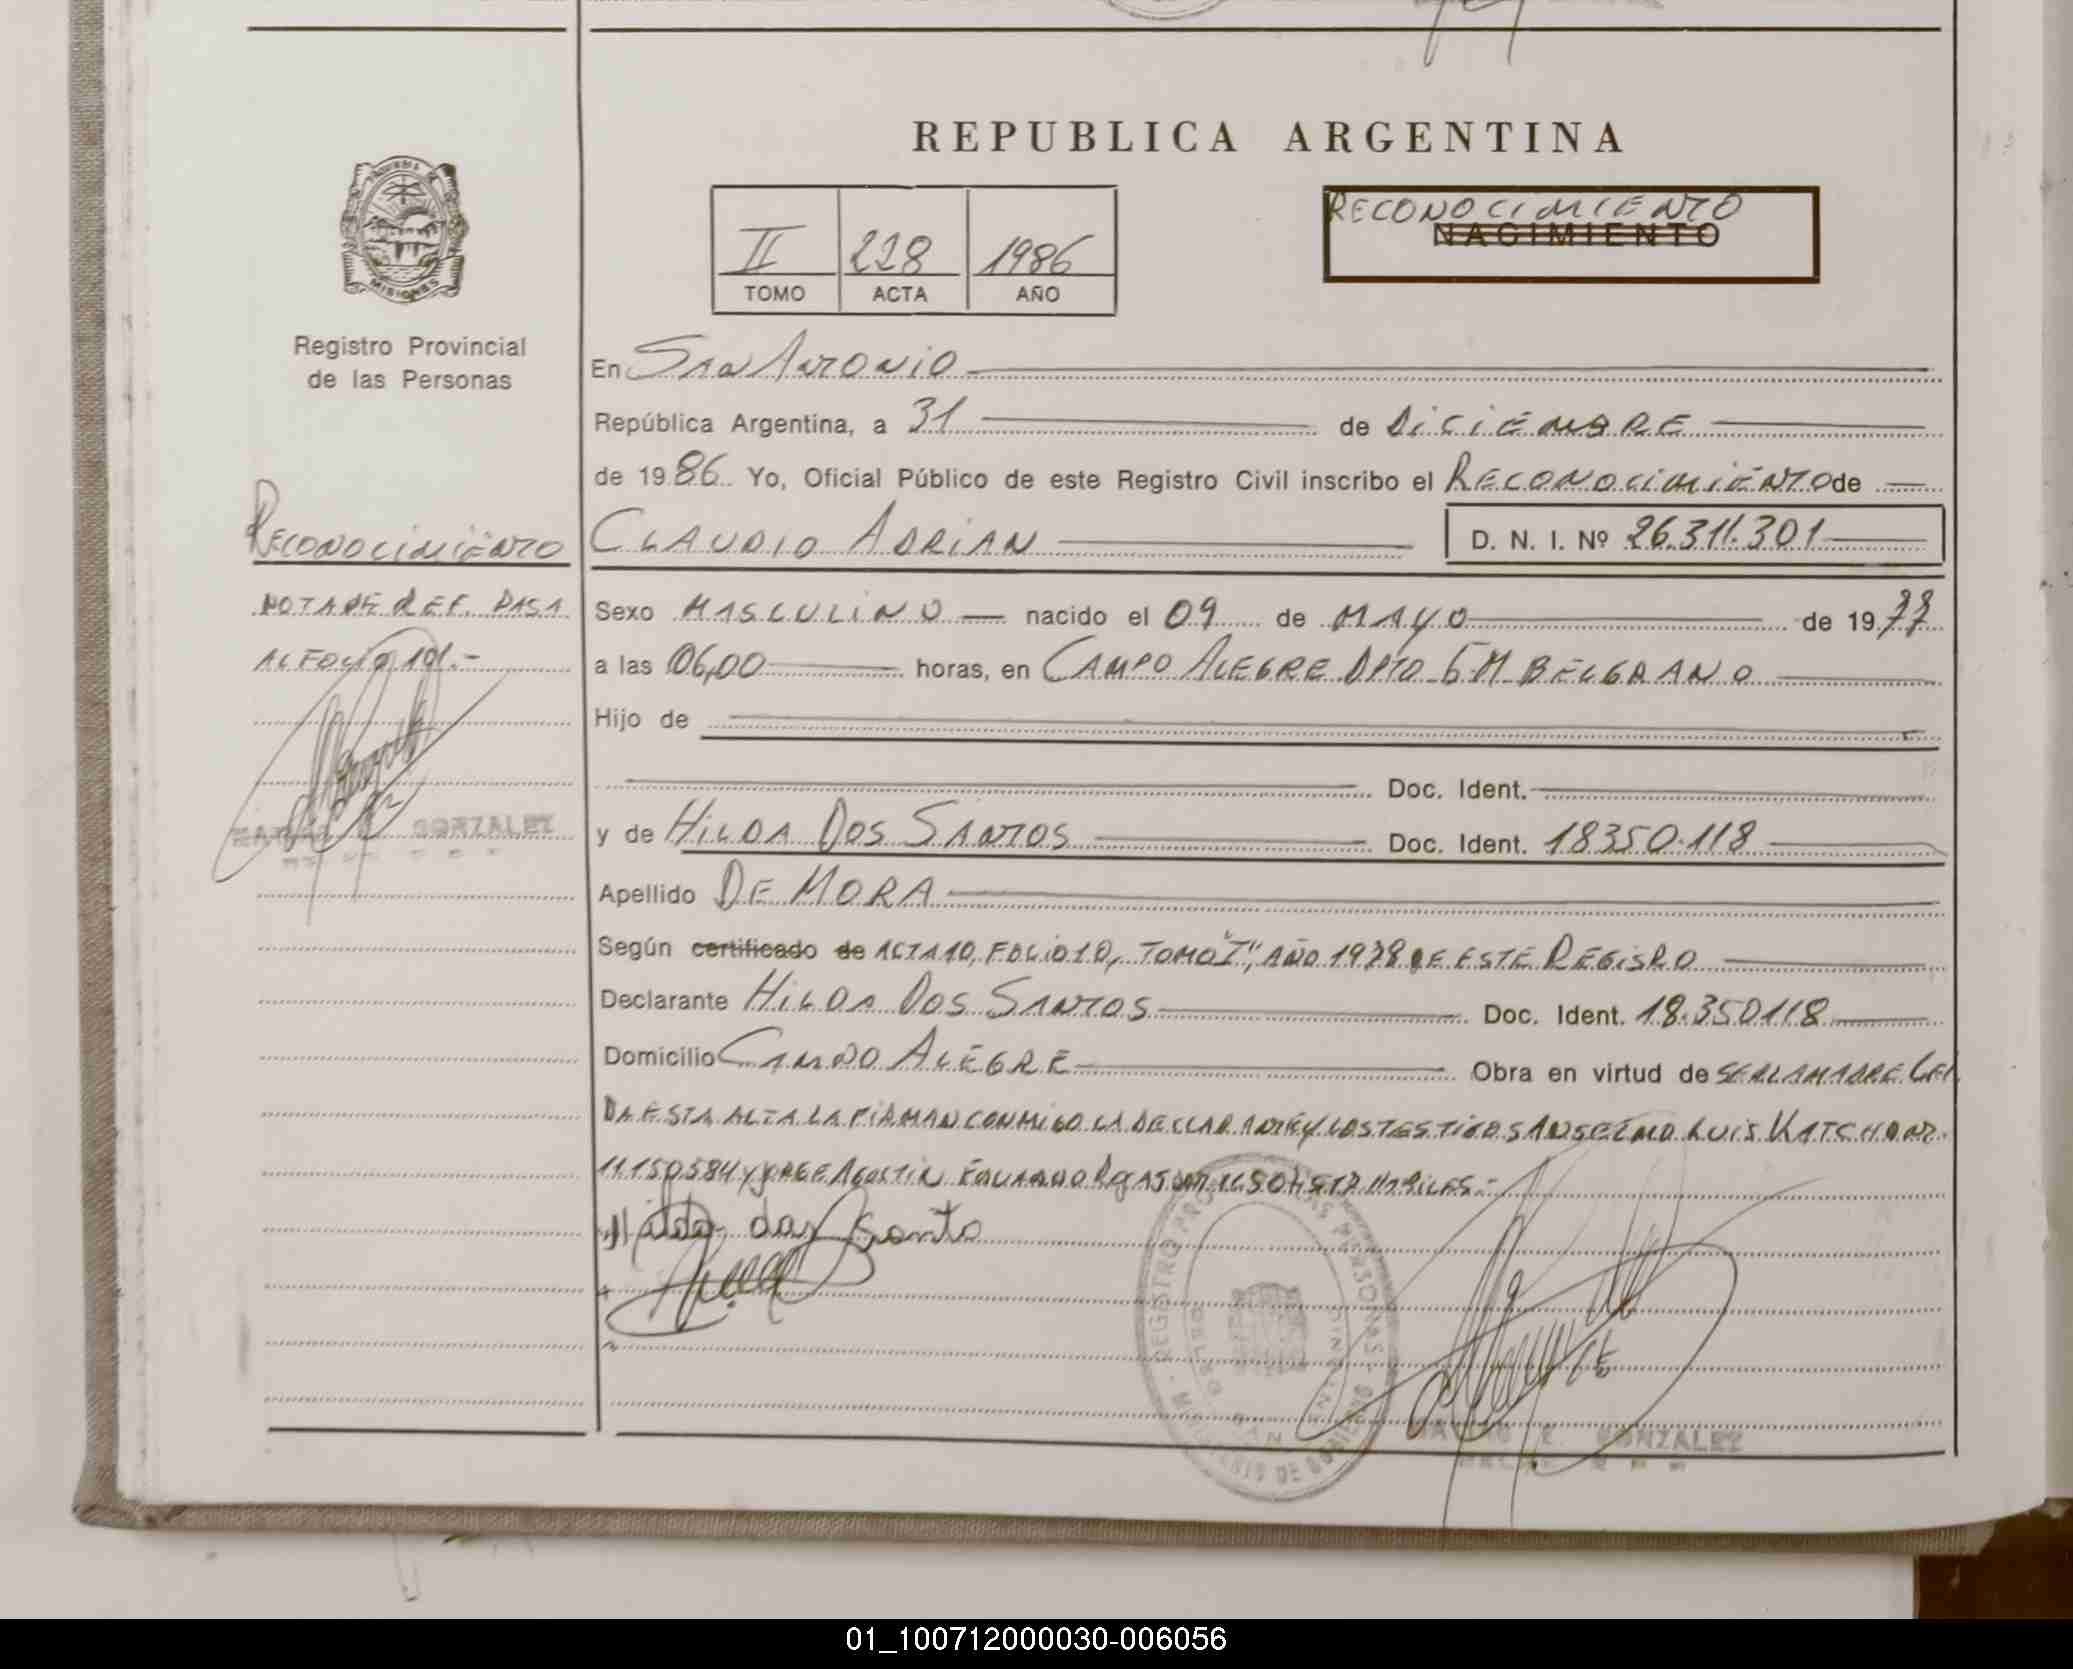 REPUBLICA ARGENTINA
II 228 1986
TOMO ACTA AÑO
RECONOCIMIENTO
NACIMIENTO
MISIONES
Registro Provincial
de las Personas
En SAN ANTONIO
República Argentina, a 31 de DICIEMBRE
de 1986 Yo, Oficial Público de este Registro Civil inscribo el RECONOCIMIENTO de
RECONOCIMIENTO
CLAUDIO ADRIAN D. N. I. Nº 26.311.301
NOTA DE REF. PASA
AL FOLIO 101.-
GONZALEZ
Sexo MASCULINO nacido el 09 de MAYO de 1977
a las 06,00 horas, en CAMPO ALEGRE DPTO G.M BELGRANO
Hijo de
Doc. Ident.
y de HILDA DOS SANTOS Doc. Ident. 18350.118
Apellido DE MORA
Según certificado de ACTA 10, FOLIO 10, TOMO "I", AÑO 1978 DE ESTE REGISRO
Declarante HILDA DOS SANTOS Doc. Ident. 18.350118
Domicilio CAMPO ALEGRE Obra en virtud de SER LA MADRE LEI
DA ESTA ACTA LA FIRMAN CONMIGO LA DECLARANTE Y LOS TESTIGOS ANSELMO LUIS KATSCHOR
11.150584 Y JORGE AGUSTIN EDUARDO ROJAS HABILES.-
Hilda dos Santo
REGISTRO PERSONAS
MINISTERIO DE GOBIERNO
SAN ANTONIO
GONZALEZ
01_100712000030-006056